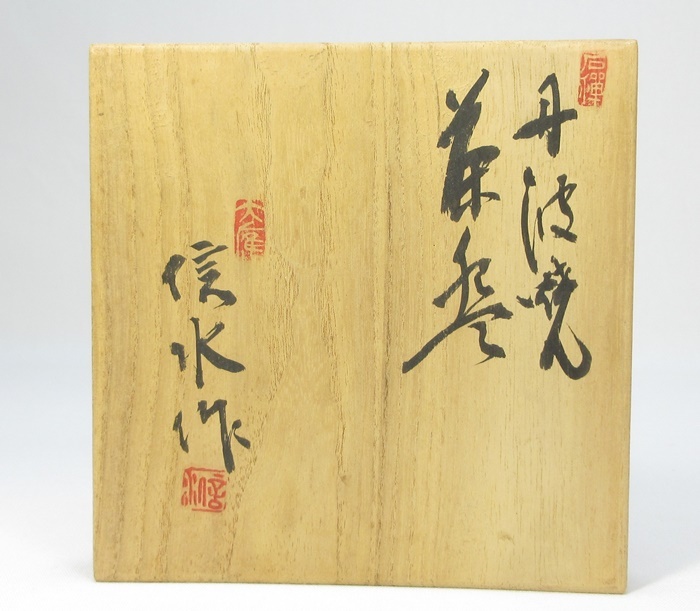 丹波焼
茶盌
信水作